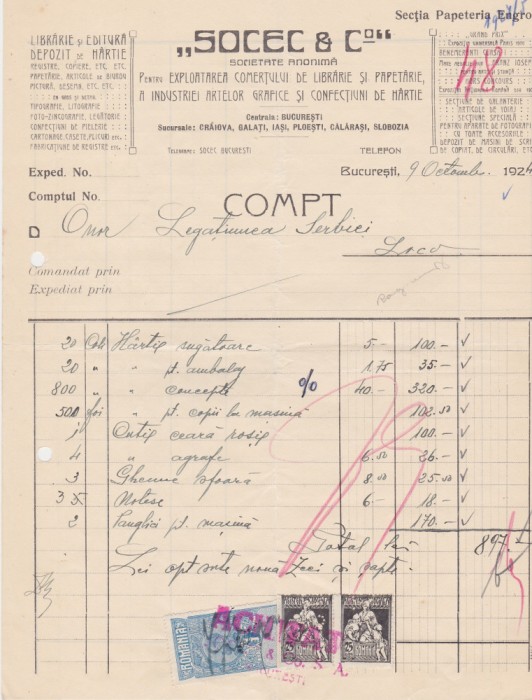 Secția Papeteria Engro
LIBRĂRIE și EDITURĂ
DEPOZIT DE HÂRTIE
REGISTRE, COPIERE, ETC. ETC.
PAPETĂRIE, ARTICOLE DE BIUROU
PICTURĂ, DESEMN, ETC. ETC.
EN GROS și EN DETAIL
TIPOGRAFIE, LITOGRAFIE
FOTO-ZINCOGRAFIE, LEGĂTORIE
CONFECȚIUNI DE PIELERIE
CARTONAGE, CASETE, PLICURI
FABRICAȚIUNE DE REGISTRE ETC.
„SOCEC & Co"
SOCIETATE ANONIMĂ
PENTRU EXPLOATAREA COMERȚULUI DE LIBRĂRIE ȘI PAPETĂRIE,
A INDUSTRIEI ARTELOR GRAFICE ȘI CONFECȚIUNI DE HÂRTIE
Centrala: BUCUREȘTI
Sucursale: CRAIOVA, GALAȚI, IAȘI, PLOEȘTI, CĂLĂRAȘI, SLOBOZIA
TELEGRAME: SOCEC BUCUREȘTI
TELEFON
"GRAND PRIX"
SECȚIUNE DE GALANTERIE
ARTICOLE DE VOIAJ
SECȚIUNE SPECIALĂ
PENTRU APARATE DE FOTOGRAF
CU TOATE ACCESORIILE
DEPOZIT DE MAȘINI DE SCRI
DE COPIAT, DE CIRCULĂRI, ETC.
118
Exped. No.
București, 9 Octombr. 1924
Comptul No.
COMPT
D Onor Legațiunea Serbiei
Loco
Comandat prin
Expediat prin
20 Coli Hârtie sugătoare 5- 100.-
20 " " pt. ambalaj 1.75 35.-
800 " " concepte % 40.- 320.-
500 foi " pt. copii la mașină 102.50
1 Cutie ceară roșie 100.-
4 " agrafe 6.50 26.-
3 Gheme sfoară 8.50 25.50
3 Notese 6- 18.-
2 Panglici pt. mașină 170.-
Total lei 897.-
Lei opt sute nouă zeci și șapte.
ACHITAT
ROMANIA